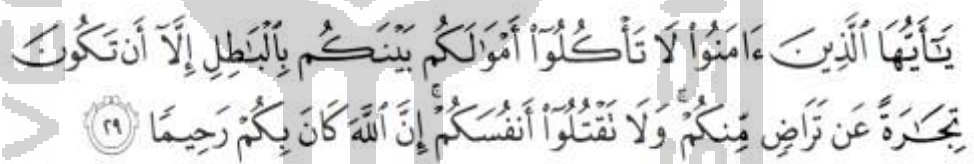 يَٰٓأَيُّهَا ٱلَّذِينَ ءَامَنُوا۟ لَا تَأْكُلُوٓا۟ أَمْوَٰلَكُم بَيْنَكُم بِٱلْبَٰطِلِ إِلَّآ أَن تَكُونَ
تِجَٰرَةً عَن تَرَاضٍ مِّنكُمْ ۚ وَلَا تَقْتُلُوٓا۟ أَنفُسَكُمْ ۚ إِنَّ ٱللَّهَ كَانَ بِكُمْ رَحِيمًا ﴿٢٩﴾